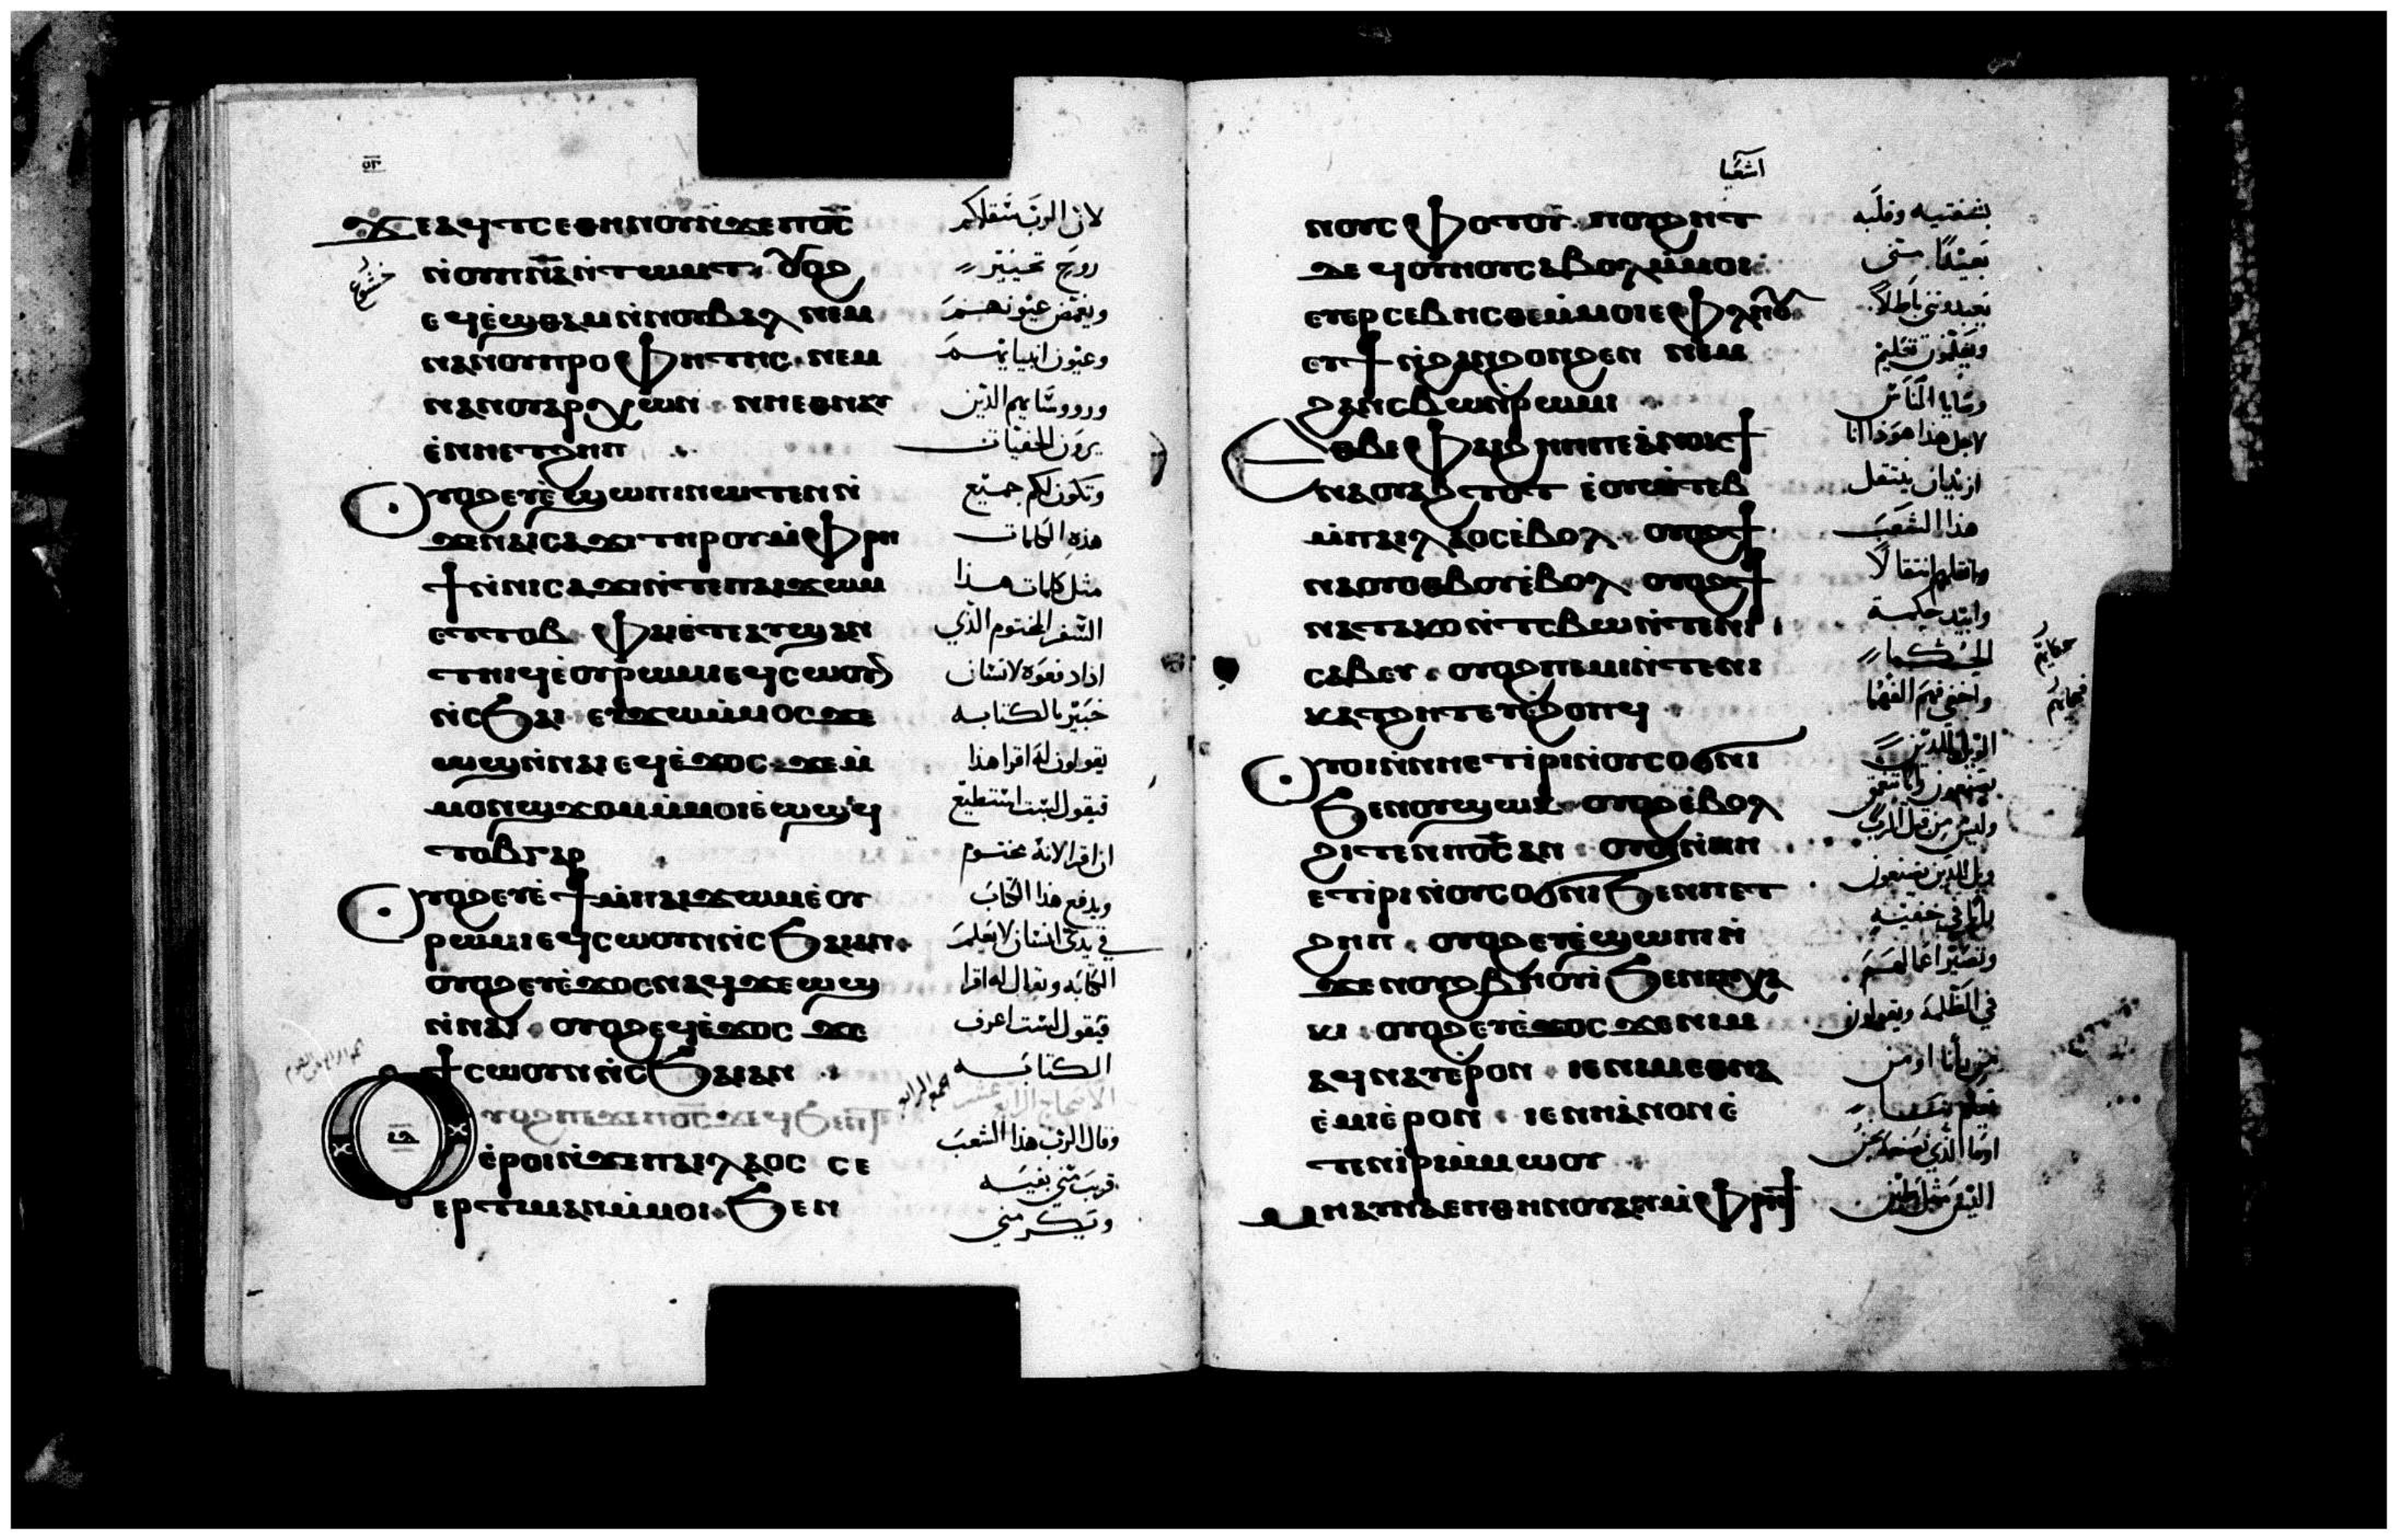 ⲟⲅ
ϫⲉ ⲁϥⲧⲥⲉ ⲑⲏⲛⲟⲩ ⲛϫⲉ ⲡⲟ̅ⲥ̅
ⲛⲟⲩⲡ̅ⲛ̅ⲁ̅ ⲛⲧⲱⲙⲧ ⲟⲩⲟϩ
ⲉϥⲉϣⲑⲁⲙ ⲛⲛⲟⲩⲃⲁⲗ ⲛⲉⲙ
ⲛⲁⲛⲟⲩⲡⲣⲟⲫⲏⲧⲏⲥ ⲛⲉⲙ
ⲛⲁⲛⲟⲩⲁⲣⲭⲱⲛ ⲛⲏⲉⲑⲛⲁⲩ
ⲉⲛⲏⲉⲧϩⲏⲡ
Ⲟⲩⲟϩ ⲉⲩⲉϣⲱⲡⲓ ⲛⲱⲧⲉⲛ ⲛ
ϫⲉ ⲛⲁⲓⲥⲁϫⲓ ⲧⲏⲣⲟⲩ ⲙⲫⲣⲏ
ϯ ⲛⲛⲓⲥⲁϫⲓ ⲛⲧⲉ ⲡⲁⲓϫⲱⲙ
ⲉⲧⲧⲟⲃ ⲫⲁⲓ ⲉⲧⲉ ⲁⲩϣⲁⲛ
ⲧⲏⲓϥ ⲉⲟⲩⲣⲱⲙⲓ ⲉϥⲥⲱⲟⲩⲛ
ⲛⲥϧⲁⲓ ⲉⲩϫⲱ ⲙⲙⲟⲥ ϫⲉ
ⲱϣ ⲛⲛⲁⲓ ⲉϥⲉϫⲟⲥ ϫⲉ ⲙ
ⲙⲟⲛ ϣϫⲟⲙ ⲙⲙⲟⲓ ⲉⲱϣ ϥ
ⲧⲟⲃ ⲅⲁⲣ
Ⲟⲩⲟϩ ⲉⲩⲉϯ ⲙⲡⲁⲓϫⲱⲙ ⲉⲟⲩ
ⲣⲱⲙⲓ ⲉϥⲥⲱⲟⲩⲛ ⲛⲥϧⲁⲓ ⲁⲛ
ⲟⲩⲟϩ ⲉⲩⲉϫⲟⲥ ⲛⲁϥ ϫⲉ ⲱϣ
ⲛⲛⲁⲓ ⲟⲩⲟϩ ⲉϥⲉϫⲟⲥ ϫⲉ
ϯⲥⲱⲟⲩⲛ ⲛⲥϧⲁⲓ ⲁⲛ
ⲟⲩⲟϩ ⲡⲉϫⲉ ⲡⲟ̅ⲥ̅ ϫⲉ ⲁϥϧⲱⲛⲧ
ⲉⲣⲟⲓ ⲛϫⲉ ⲡⲁⲓⲗⲁⲟⲥ ⲥⲉ
ⲉⲣⲧⲓⲙⲁⲛ ⲙⲙⲟⲓ ϧⲉⲛ
خشوع
لان الرب سقاكم
روح تحيير
ويغمض عيونهم
وعيون انبيائهم
ورووسائهم الذين
يرون الخفيات
وتكون لكم جميع
هذه الكلمات
مثل كلمات هذا
السفر المختوم الذي
اذا دفعوه لانسان
خبير بالكتابه
يقولون له اقرا هذا
فيقول لست استطيع
ان اقرا لانه مختوم
ويدفع هذا الكتاب
في يدي انسان لا يعلم
الكتابه ويقال له اقرا
فيقول لست اعرف
الكتابه
الاصحاح الرابع عشر
وقال الرب هذا الشعب
قريب مني بفيه
ويكرمني
اشعيا
ⲛⲟⲩⲥⲫⲟⲧⲟⲩ ⲡⲟⲩϩⲏⲧ
ⲇⲉ ϥⲟⲩⲏⲟⲩ ⲥⲁⲃⲟⲗ ⲙⲙⲟⲓ
ⲉⲩⲉⲣⲥⲉⲃⲏⲥⲑⲉ ⲙⲙⲟⲓ ⲉⲫⲗⲏⲟⲩ
ⲉⲩϯ ⲛϩⲁⲛϩⲟⲛϩⲉⲛ ⲛⲉⲙ
ϩⲁⲛⲥⲃⲱ ⲛⲣⲱⲙⲓ
Ⲉⲑⲃⲉ ⲫⲁⲓ ϩⲏⲡⲡⲉ ⲁⲛⲟⲕ ϯ
ⲛⲁⲟⲩⲁϩⲧⲟⲧ ⲉⲟⲩⲱⲧⲉⲃ
ⲙⲡⲁⲓⲗⲁⲟⲥ ⲉⲃⲟⲗ ⲟⲩⲟϩ ϯ
ⲛⲁⲟⲩⲟⲑⲃⲟⲩ ⲉⲃⲟⲗ ⲟⲩⲟϩ ϯ
ⲛⲁⲧⲁⲕⲟ ⲛⲧⲥⲃⲱ ⲛⲧⲉ ⲛⲓ
ⲥⲁⲃⲉⲩ ⲟⲩⲟϩ ⲡⲉⲙⲓ ⲛⲧⲉ ⲛⲓ
ⲕⲁⲧϩⲏⲧ ⲉⲩⲉϩⲟⲡϥ
Ⲟⲩⲟⲓ ⲛⲛⲏⲉⲧⲓⲣⲓ ⲛⲟⲩⲥⲟϭⲛⲓ
ϧⲉⲛ ⲟⲩϣⲱⲕ ⲟⲩⲟϩ ⲉⲃⲟⲗ
ϩⲓⲧⲉⲛ ⲡⲟ̅ⲥ̅ ⲁⲛ ⲟⲩⲟⲓ ⲛⲛⲏ
ⲉⲧⲓⲣⲓ ⲛⲟⲩⲥⲟϭⲛⲓ ϧⲉⲛ ⲡⲉⲧ
ϩⲏⲡ ⲟⲩⲟϩ ⲉⲩⲉϣⲱⲡⲓ ⲛ
ϫⲉ ⲛⲟⲩϩⲃⲏⲟⲩⲓ ϧⲉⲛ ⲡⲭⲁ
ⲕⲓ ⲟⲩⲟϩ ⲉⲩⲉϫⲟⲥ ϫⲉ ⲛⲓⲙ
ⲁϥⲛⲁⲩ ⲉⲣⲟⲛ ⲓⲉ ⲛⲓⲙ ⲉⲑⲛⲁ
ⲉⲙⲓ ⲉⲣⲟⲛ ⲓⲉ ⲛⲏ ⲁⲛⲟⲛ ⲉ
ⲧⲉⲛⲓⲣⲓ ⲙⲙⲱⲟⲩ
ⲙⲫⲣⲏϯ
بشفتيه وقلبه
بعيدا مني
يعبدونني باطلا
ويعلمون تعليم
وصايا الناس
لاجل هذا هوذا انا
ازيد ان ينتقل
هذا الشعب
وانقلهم انتقالا
وابيد حكمة
الحكما
واخفي فهم الفهما
الويل للذين
وليس من قبل الرب
ويل للذين يصنعون
رايا في خفيه
وتصير اعمالهم
في الظلمة ويقولون
من رأنا او من